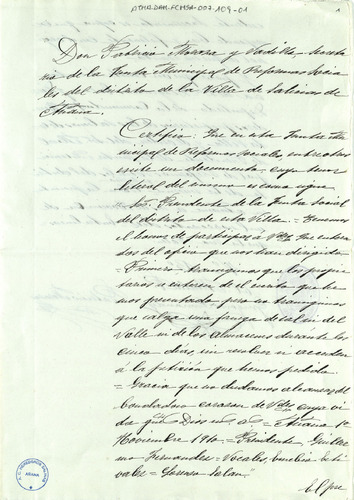 ATHA-DAH-FCMSA-007-109-01
Don Patricio y Padilla, Secreta
rio de la Junta Municipal de Reformas Socia
les del distrito de la Villa de Salinas de
Añana.
Certifico: Que en esta Junta Mu
nicipal de Reformas sociales, entre otros
existe un documento cuyo tenor
literal del mismo es como sigue
Sr. Presidente de la Junta Social
del distrito de esta Villa = Tenemos
el honor de participar á Vdes que entera
dos del oficio que nos han dirigido
= Primero, transigimos que los propie
tarios se enteren de el escrito que he
mos presentado pero no transigimos
que salga una fanega de sal ni del
Valle ni de los almacenes durante los
cinco dias, sin resolver si acceden
á la petición que hemos pedido.
= Gracia que no dudamos alcanzar del
bondadoso corazon de Vdes cuya vi
da gue Dios m. a. = Añana 1º
Noviembre 1910 = Presidente, Guiller
mo Fernandez = Vocales, Este
vales = Lorenzo
El Pre
AÑANA